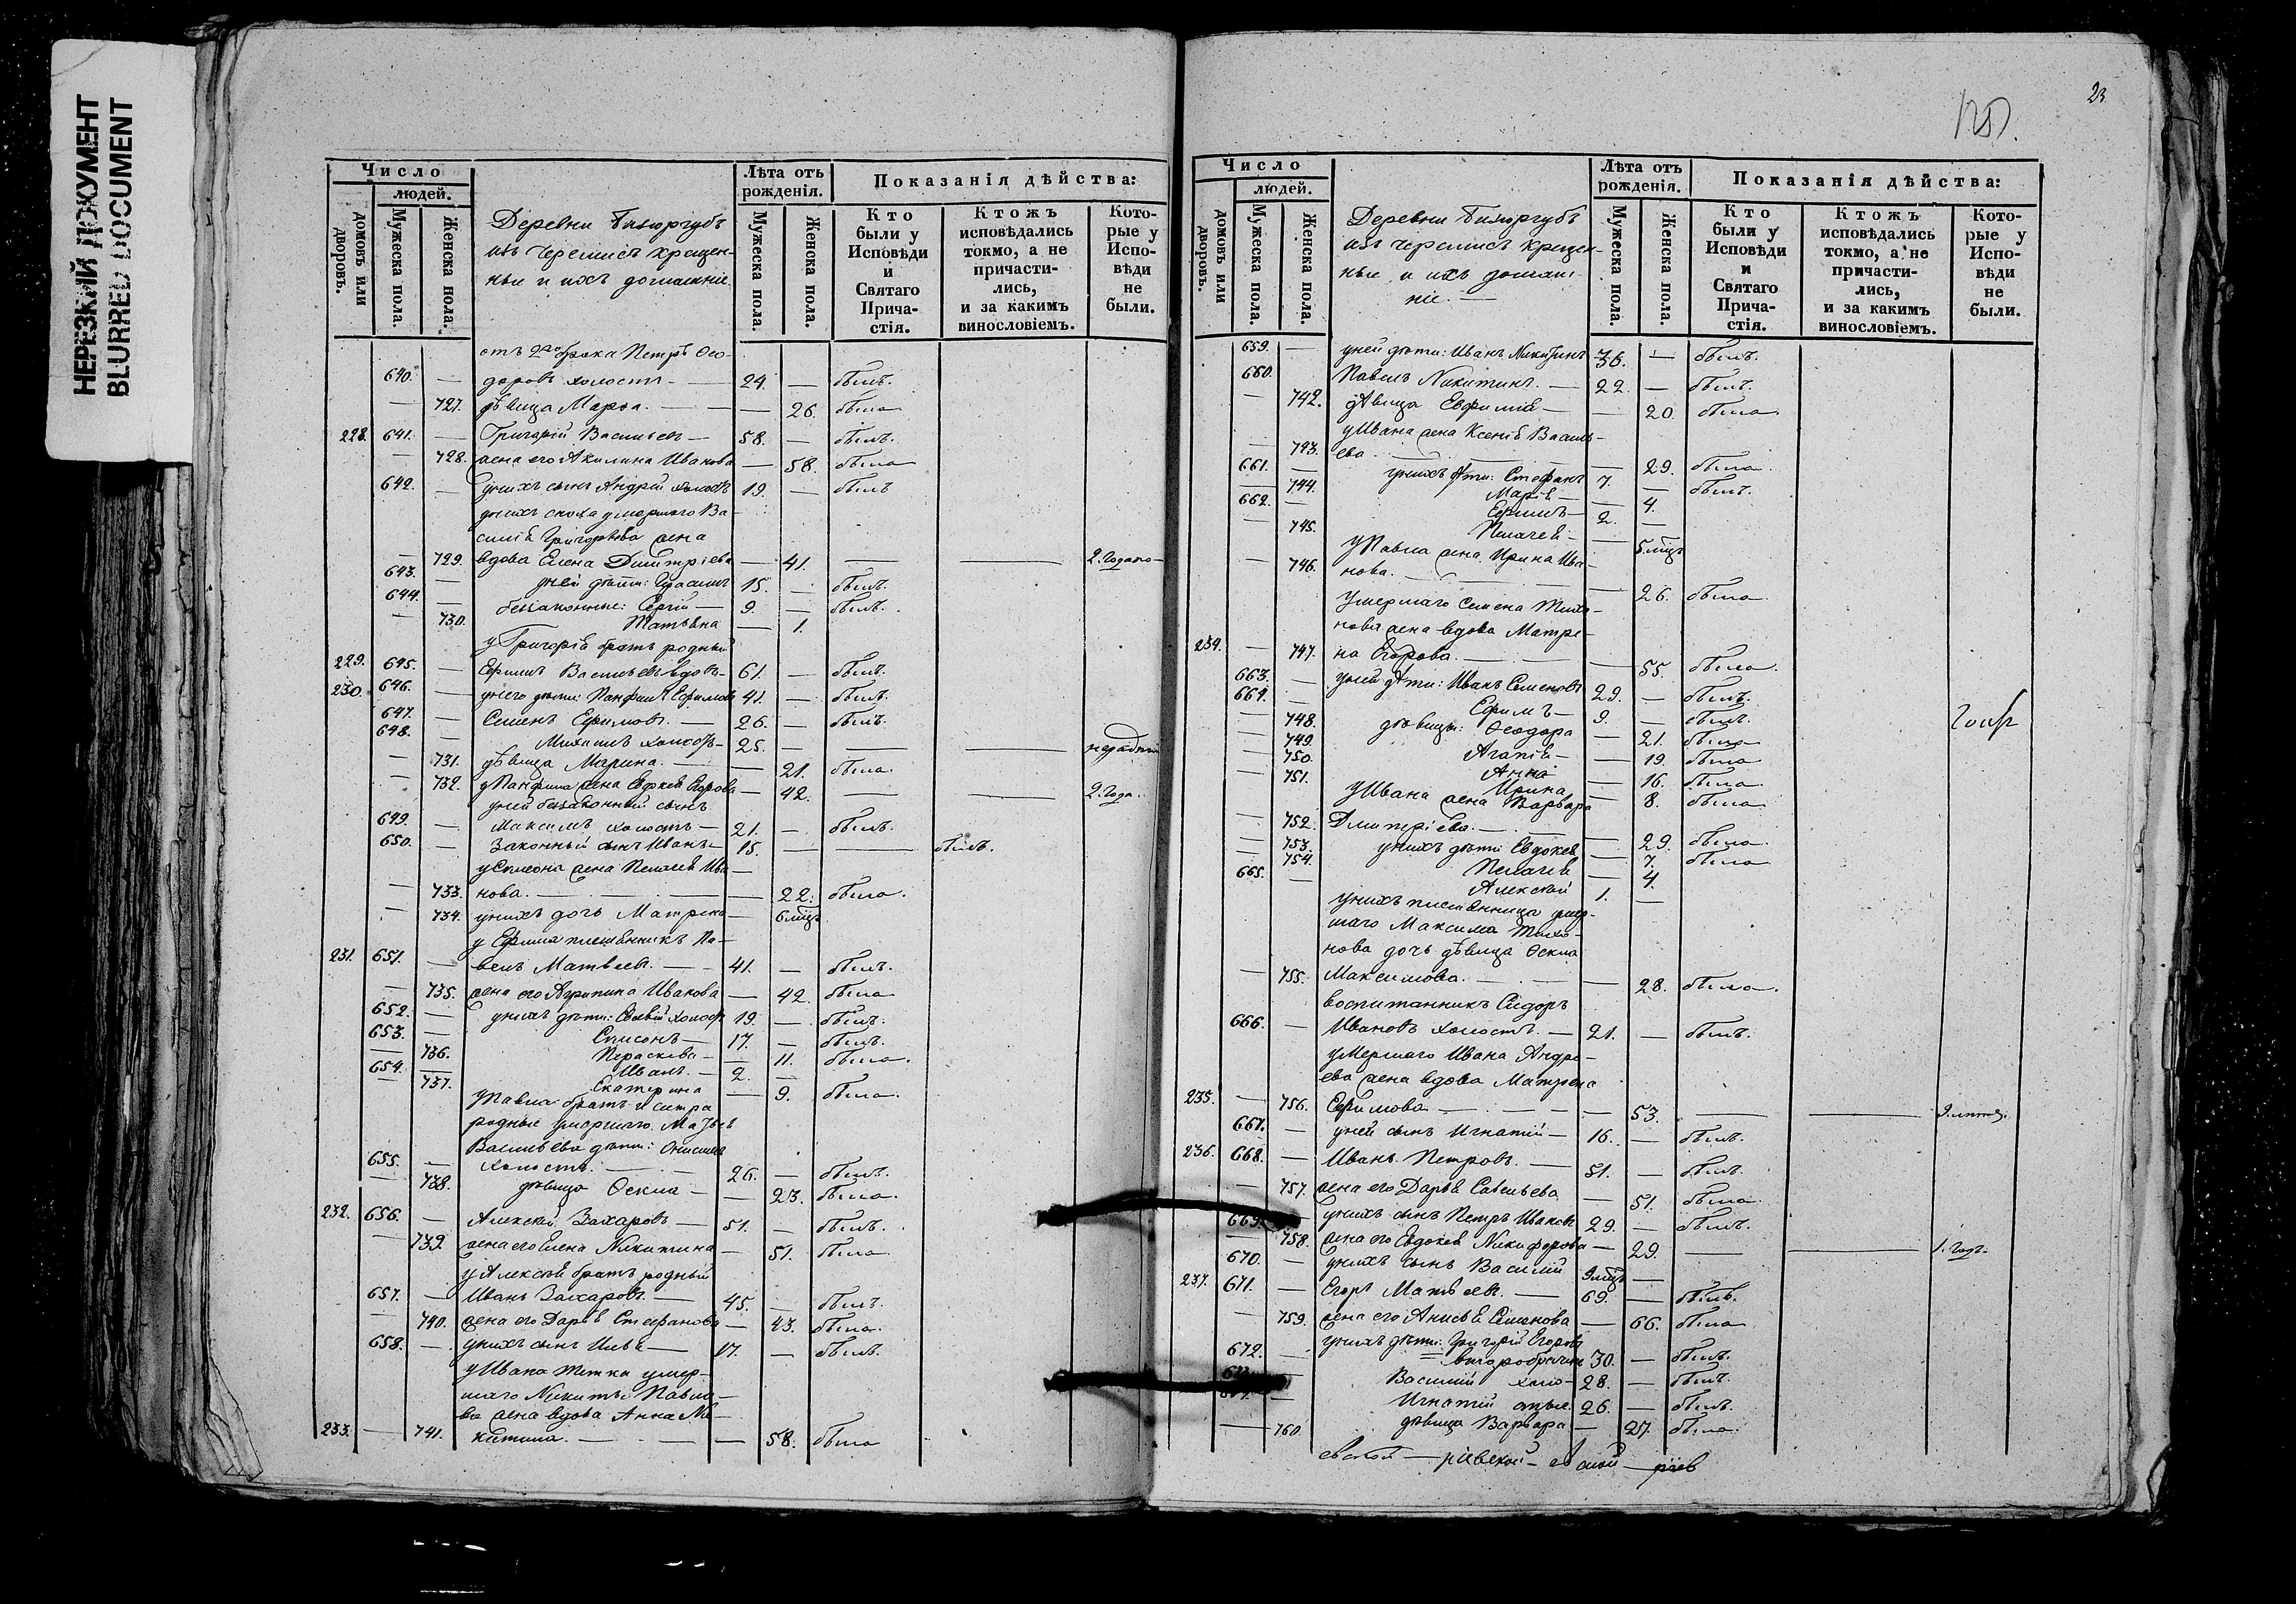 НЕРЕЗКИЙ ДОКУМЕНТ
BLURRED DOCUMENT
Число
людей.
домовъ или дворовъ.
Мужеска пола.
Женска пола.
Деревни
изъ черемисъ крещен-
ные и ихъ домашніе.
Лѣта отъ рожденія.
Мужеска пола.
Женска пола.
Показанія дѣйства:
Кто были у Исповѣди и Святаго Прича-стія.
Ктожъ исповѣдались токмо, а не причасти-лись, и за какимъ винословіемъ.
Кото-рые у Испо-вѣди не были.
отъ 2го брака Петръ Ѳео-
640. — доровъ холостъ — 24. — былъ.
— 727. дѣвица Марѳа. — — 26. была
228. 641. — Григорій Васильевъ — 58. — былъ.
— 728. жена его Акилина Иванова — 58. была
642. — у нихъ сынъ Андрей холостъ 19. — былъ
у нихъ сноха умершаго Ва-
силія Григорьева жена
— 729. вдова Елена Димитріева — 41. — — 2.
643. — у ней дѣти: 15. — былъ.
644. — беззаконные: Сергій — 9. — былъ.
— 730. Татьяна — 1.
у Григорія братъ родный
229. 645. — Ефимъ Васильевъ вдовъ — 61. — былъ.
230. 646. — у него дѣти: Панфилъ Ефимовъ 41. — былъ.
647. — Семенъ Ефимовъ. — 26. — былъ.
648. — Михаилъ холостъ — 25. — — —
— 731. дѣвица Марина. — — 21. была.
— 732. у Панфила жена Евдокея Егорова — 42. — — 2. года.
у ней беззаконный сынъ
649. — Максимъ холостъ — 21. — былъ.
650. — Законный сынъ Иванъ — 15. — — былъ.
у Симеона жена Пелагея Ива-
— 733. нова. — — 22. была.
— 734. у нихъ дочь Матрена — 6 мѣсц.
у Ефима племянникъ Па-
231. 651. — велъ Матвеевъ. — 41. — былъ.
— 735. жена его Агрипина Иванова — 42. была
652. — у нихъ дѣти: холостъ 19. — былъ.
653. — Симеонъ — 17. — былъ.
— 736. Параскева — — 11. была.
654. — Иванъ. — 2. —
— 737. Екатерина — 9. была.
у Павла братъ и сестра
родные умершаго Матвея
Васильева дѣти: Онисимъ
655. — холостъ. — 26. — былъ.
— 738. дѣвица Ѳекла — — 23. была.
232. 656. — Алексей Захаровъ — 51. — былъ.
— 739 жена его Елена Никитина — 51. была
у Алексѣя братъ родный
657. — Иванъ Захаровъ. — 45. — былъ.
— 740. жена его Дарья Стефанова — 43. была.
658. — у нихъ сынъ Илья — 17. — былъ.
у Ивана тетка умер-
шаго Никиты Павло-
ва жена вдова Анна Ни-
233. — 741. китина. — — 58. была
23
Число
людей.
домовъ или дворовъ.
Мужеска пола.
Женска пола.
Деревни
изъ черемисъ крещен-
ные и ихъ домаш-
ніе. —
Лѣта отъ рожденія.
Мужеска пола.
Женска пола.
Показанія дѣйства:
Кто были у Исповѣди и Святаго Прича-стія.
Ктожъ исповѣдались токмо, а не причасти-лись, и за какимъ винословіемъ.
Кото-рые у Испо-вѣди не были.
659. — у ней дѣти: Иванъ Никитинъ 36. — былъ.
660. Павелъ Никитинъ. — 22. — былъ.
— 742. дѣвица Евфимія — — 20 была
у Ивана жена Ксенія Василь-
— 743. ева. — — 29. была.
661. — у нихъ дѣти: Стефанъ 7. — былъ.
— 744. Марія — — 4.
662. — Ефимъ — 2. —
— 745. Пелагея — — 5 мѣсц
у Павла жена Ирина Ива-
— 746. нова. — — 26. была.
умершаго Семена Тихо-
нова жена вдова Матре-
234. — 747. на Егорова. — — 55. была.
663. — у ней дѣти: Иванъ Семеновъ 29. — былъ.
664. — Ефимъ — 9. — былъ.
— 748. дѣвицы: Ѳеодора — 21. была
— 749. Агапія — — 19. была
— 750. Анна — 16. была
— 751. Ирина — 8. была
у Ивана жена Варвара
— 752. Дмитріева. — — 29. была.
— 753. у нихъ дѣти Евдокея — 7. была
— 754. Пелагея — 4.
665. — Алексѣй 1. —
у нихъ племянница умер-
шаго Максима Тихо-
нова дочь дѣвица Ѳекла
— 755. Максимова. — — 28. была.
воспитанникъ Сидоръ
666. — Ивановъ холостъ. — 21. — былъ.
умершаго Ивана Андре-
ева жена вдова Матрена
235. — 756. Ефимова — — 53. — — 9.
667. — у ней сынъ Игнатій — 16. — былъ.
236. 668. — Иванъ Петровъ. — 51. — былъ
— 757. жена его Дарья Савельева — 51. была.
669. у нихъ сынъ Петръ Ивановъ 29. — былъ.
— 758. жена его Евдокея Никифорова — 29. — — 1. годъ.
670. — у нихъ сынъ Василій 9 мѣсц —
237. 671. — Егоръ Матвеевъ. — 69. — былъ.
— 759. жена его Анисья Семенова — 66. была
у нихъ дѣти: Григорій Егоровъ
672. — второбрачный 30. — былъ.
673. — Василій холо- 28. — былъ.
674. — Игнатій 26. — былъ.
— 760. дѣвица Варвара — 27. была.